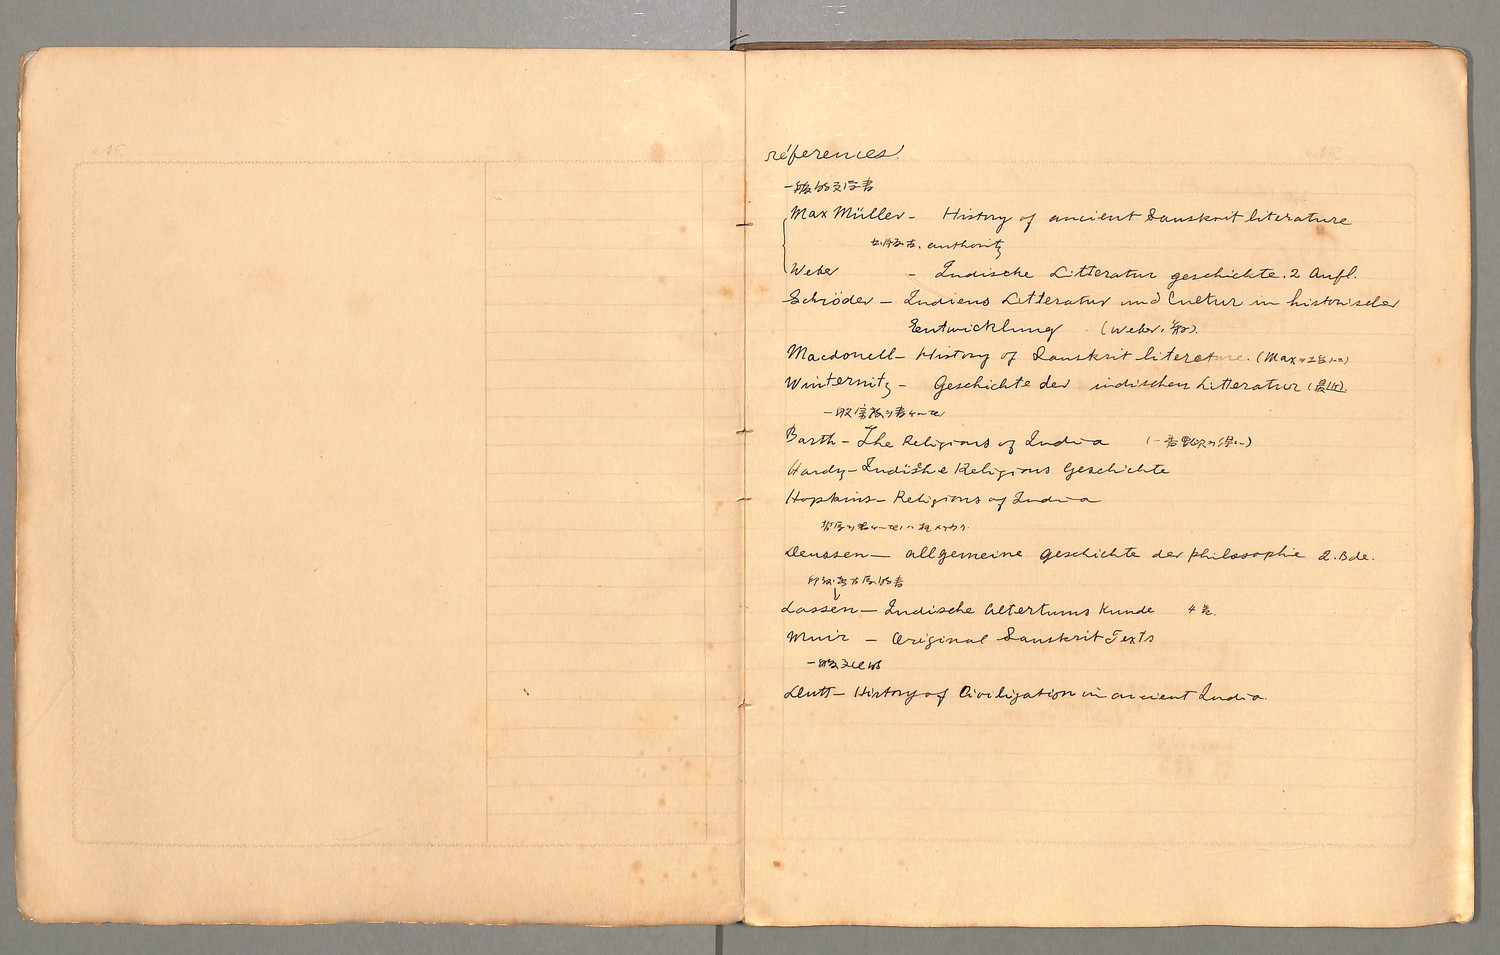 références.
一般的文学書
Max Müller - History of ancient Sanskrit literature
authority
Weber - Indische Litteratur geschichte. 2 Aufl.
Schröder - Indiens Litteratur und Cultur in historischer
Entwicklung. (Weber,
Macdonell - History of Sanskrit literature. (Max
Winternitz - Geschichte der indischen Litteratur (最近)
一般宗教ノ書
Barth - The Religions of India
Hardy - Indische Religions Geschichte
Hopkins - Religions of India
Deussen - allgemeine geschichte der philosophie 2. Bde.
印度考古学的書
Lassen - Indische Altertums Kunde 4巻.
Muir - Original Sanskrit Texts
一般文化的
Dutt - History of Civilization in ancient India.